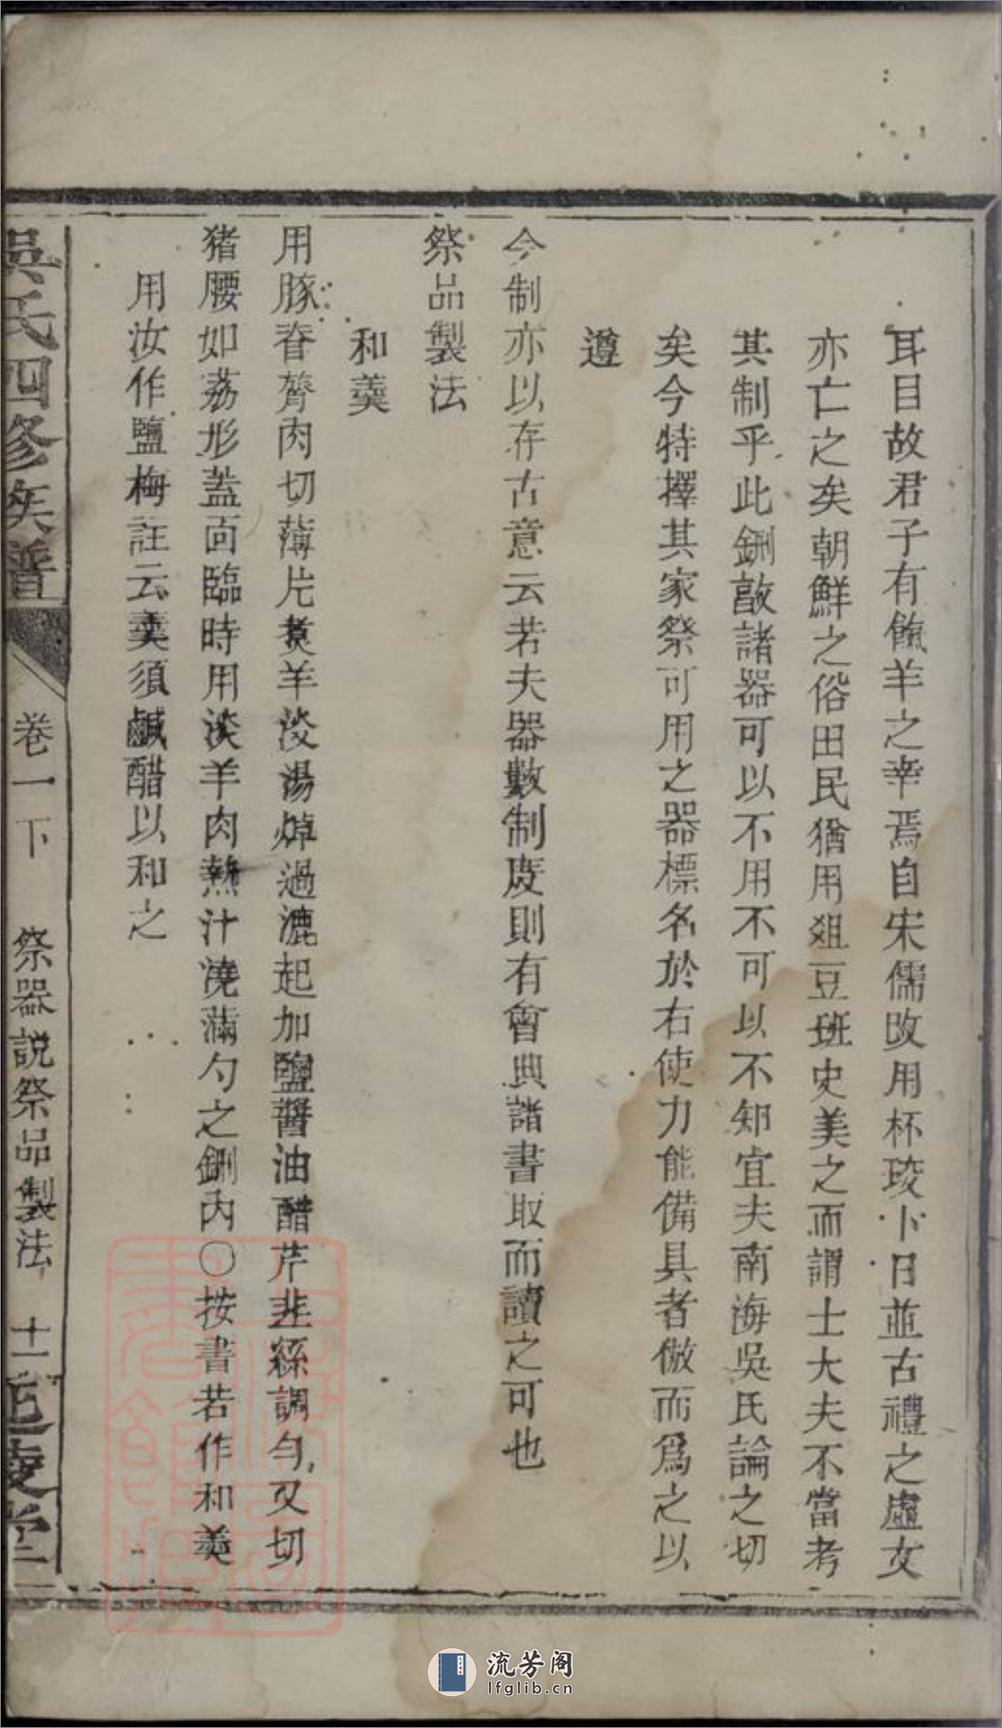 耳目故君子有餼羊之幸焉自宋儒改用杯珓卜日並古禮之虛文
亦亡之矣朝鮮之俗田民猶用俎豆班史美之而謂士大夫不當考
其制乎此鉶敦諸器可以不用不可以不知宜夫南海吳氏論之切
矣今特擇其家祭可用之器標名於右使力能備具者倣而爲之以
遵
今制亦以存古意云若夫器數制度則有會典諸書取而讀之可也
祭品製法
和羹
用豚脊膂肉切薄片煮羊淡湯焯過漉起加鹽醬油醋芹韭絲調勻又切
猪腰如荔形蓋面臨時用淡羊肉熱汁澆滿勺之鉶內〇按書若作和羹
用汝作鹽梅註云羹須鹹醋以和之
吳氏四修族譜
卷一下
祭器說祭品製法
十一
延陵堂
流芳阁
lfglib.cn